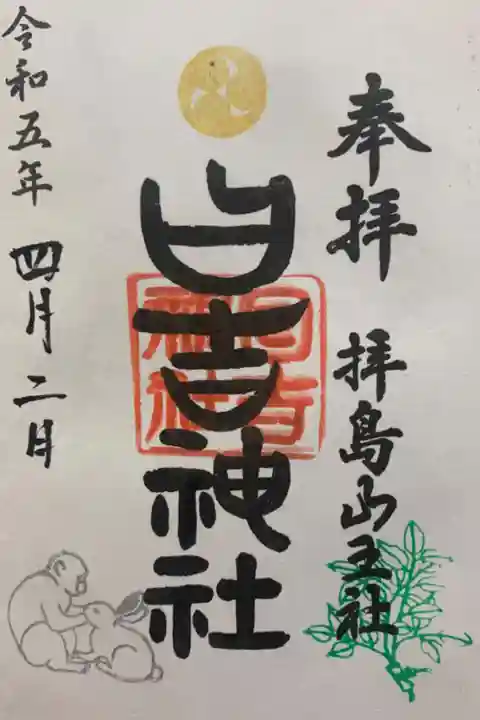 奉拝 拝島山王社
日吉神社
日吉神社
令和五年 四月二日